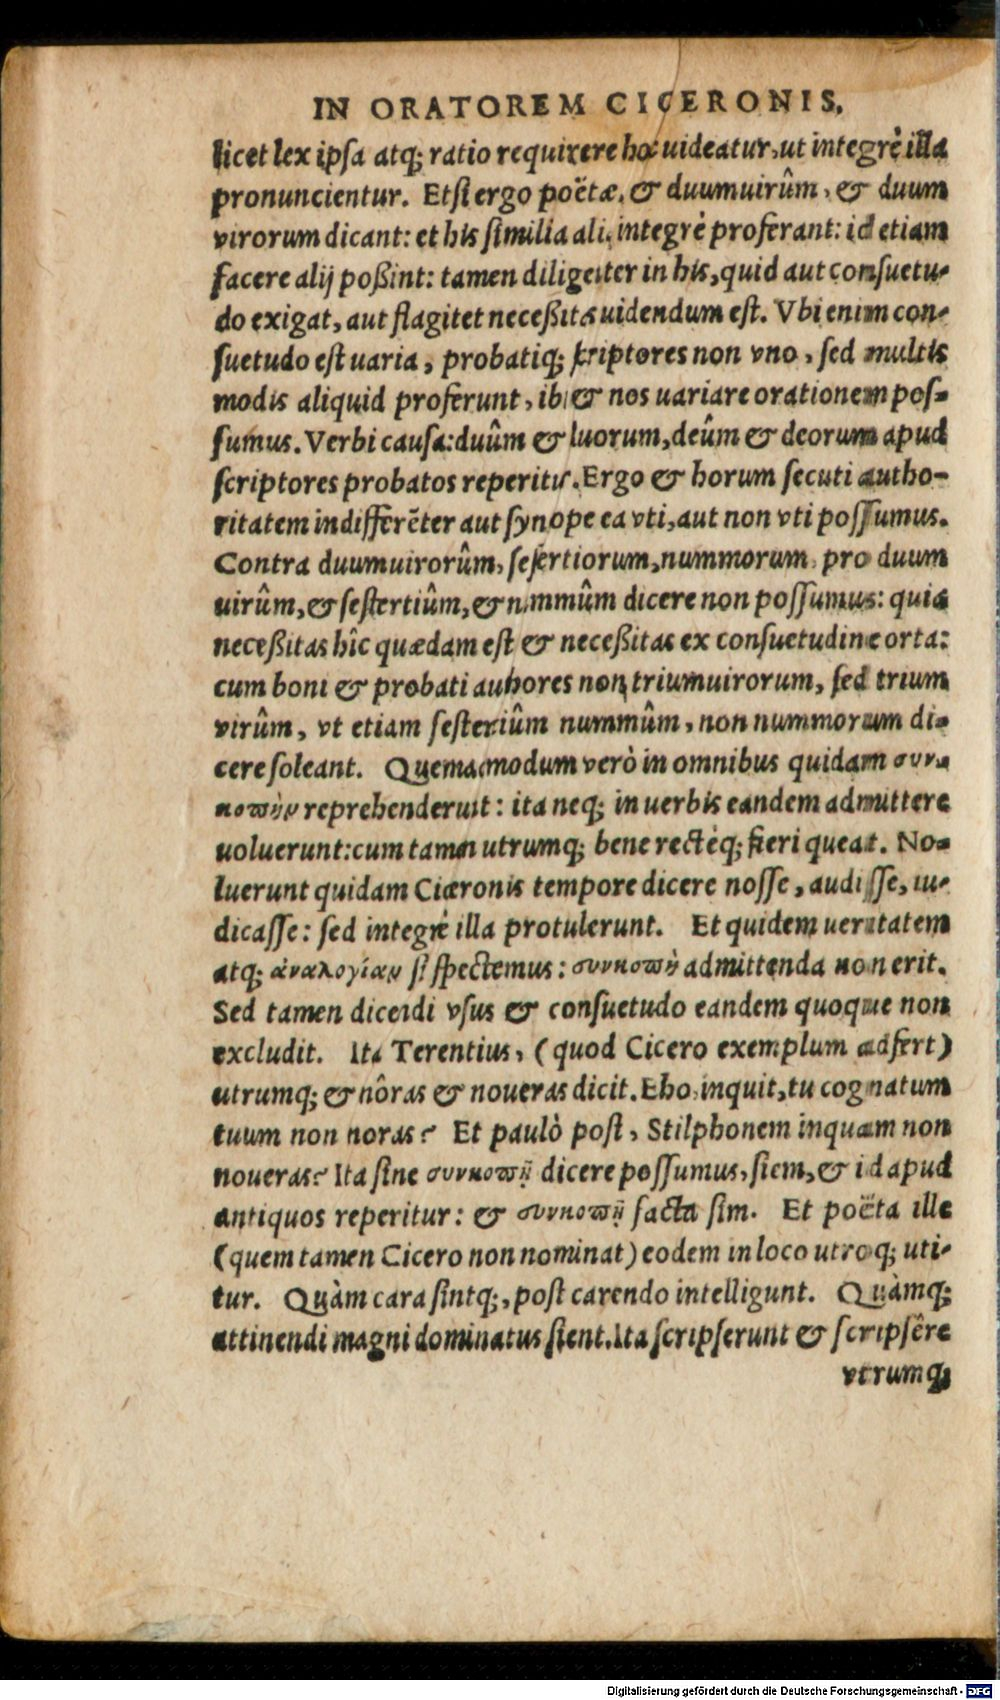 IN ORATOREM CICERONIS.
licet lex ipsa atq; ratio requirere hoc uideatur, ut integrè illa
pronuncientur. Etsi ergo poëtæ, & duumuirûm, & duum
virorum dicant: et his similia alij integrè proferant: id etiam
facere alij poßint: tamen diligenter in his, quid aut consuetu-
do exigat, aut flagitet neceßitas uidendum est. Vbi enim con-
suetudo est uaria, probatiq; scriptores non vno, sed multis
modis aliquid proferunt, ibi & nos uariare orationem pos-
sumus. Verbi causa: duûm & duorum, deûm & deorum apud
scriptores probatos reperitis. Ergo & horum secuti autho-
ritatem indifferẽter aut synope ea vti, aut non vti possumus.
Contra duumuirorûm, sestertiorum, nummorum pro duum
uirûm, & sestertiûm, & nummûm dicere non possumus: quia
neceßitas hîc quædam est & neceßitas ex consuetudine orta:
cum boni & probati authores non triumuirorum, sed trium
virûm, vt etiam sestertiûm nummûm, non nummorum di-
cere soleant. Quemadmodum verò in omnibus quidam συν-
κοπὴν reprehenderunt: ita neq; in uerbis eandem admittere
uoluerunt: cum tamen utrumq; bene rectéq; fieri queat. No-
luerunt quidam Ciceronis tempore dicere nosse, audisse, iu-
dicasse: sed integrè illa protulerunt. Et quidem ueritatem
atq; ἀναλογίαν si spectemus: συνκοπὴ admittenda non erit.
Sed tamen dicendi vsus & consuetudo eandem quoque non
excludit. Ita Terentius, (quod Cicero exemplum adfert)
utrumq; & nôras & noueras dicit. Eho, inquit, tu cognatum
tuum non noras? Et paulò post, Stilphonem inquam non
noueras? Ita sine συνκοπῇ dicere possumus, siem, & id apud
antiquos reperitur: & συνκοπῇ facta sim. Et poëta ille
(quem tamen Cicero non nominat) eodem in loco utroq; uti-
tur. Quàm cara sintq;, post carendo intelligunt. Quàmq;
attinendi magni dominatus sient. Ita scripserunt & scripsêre
vtrumq;
Digitalisierung gefördert durch die Deutsche Forschungsgemeinschaft - DFG